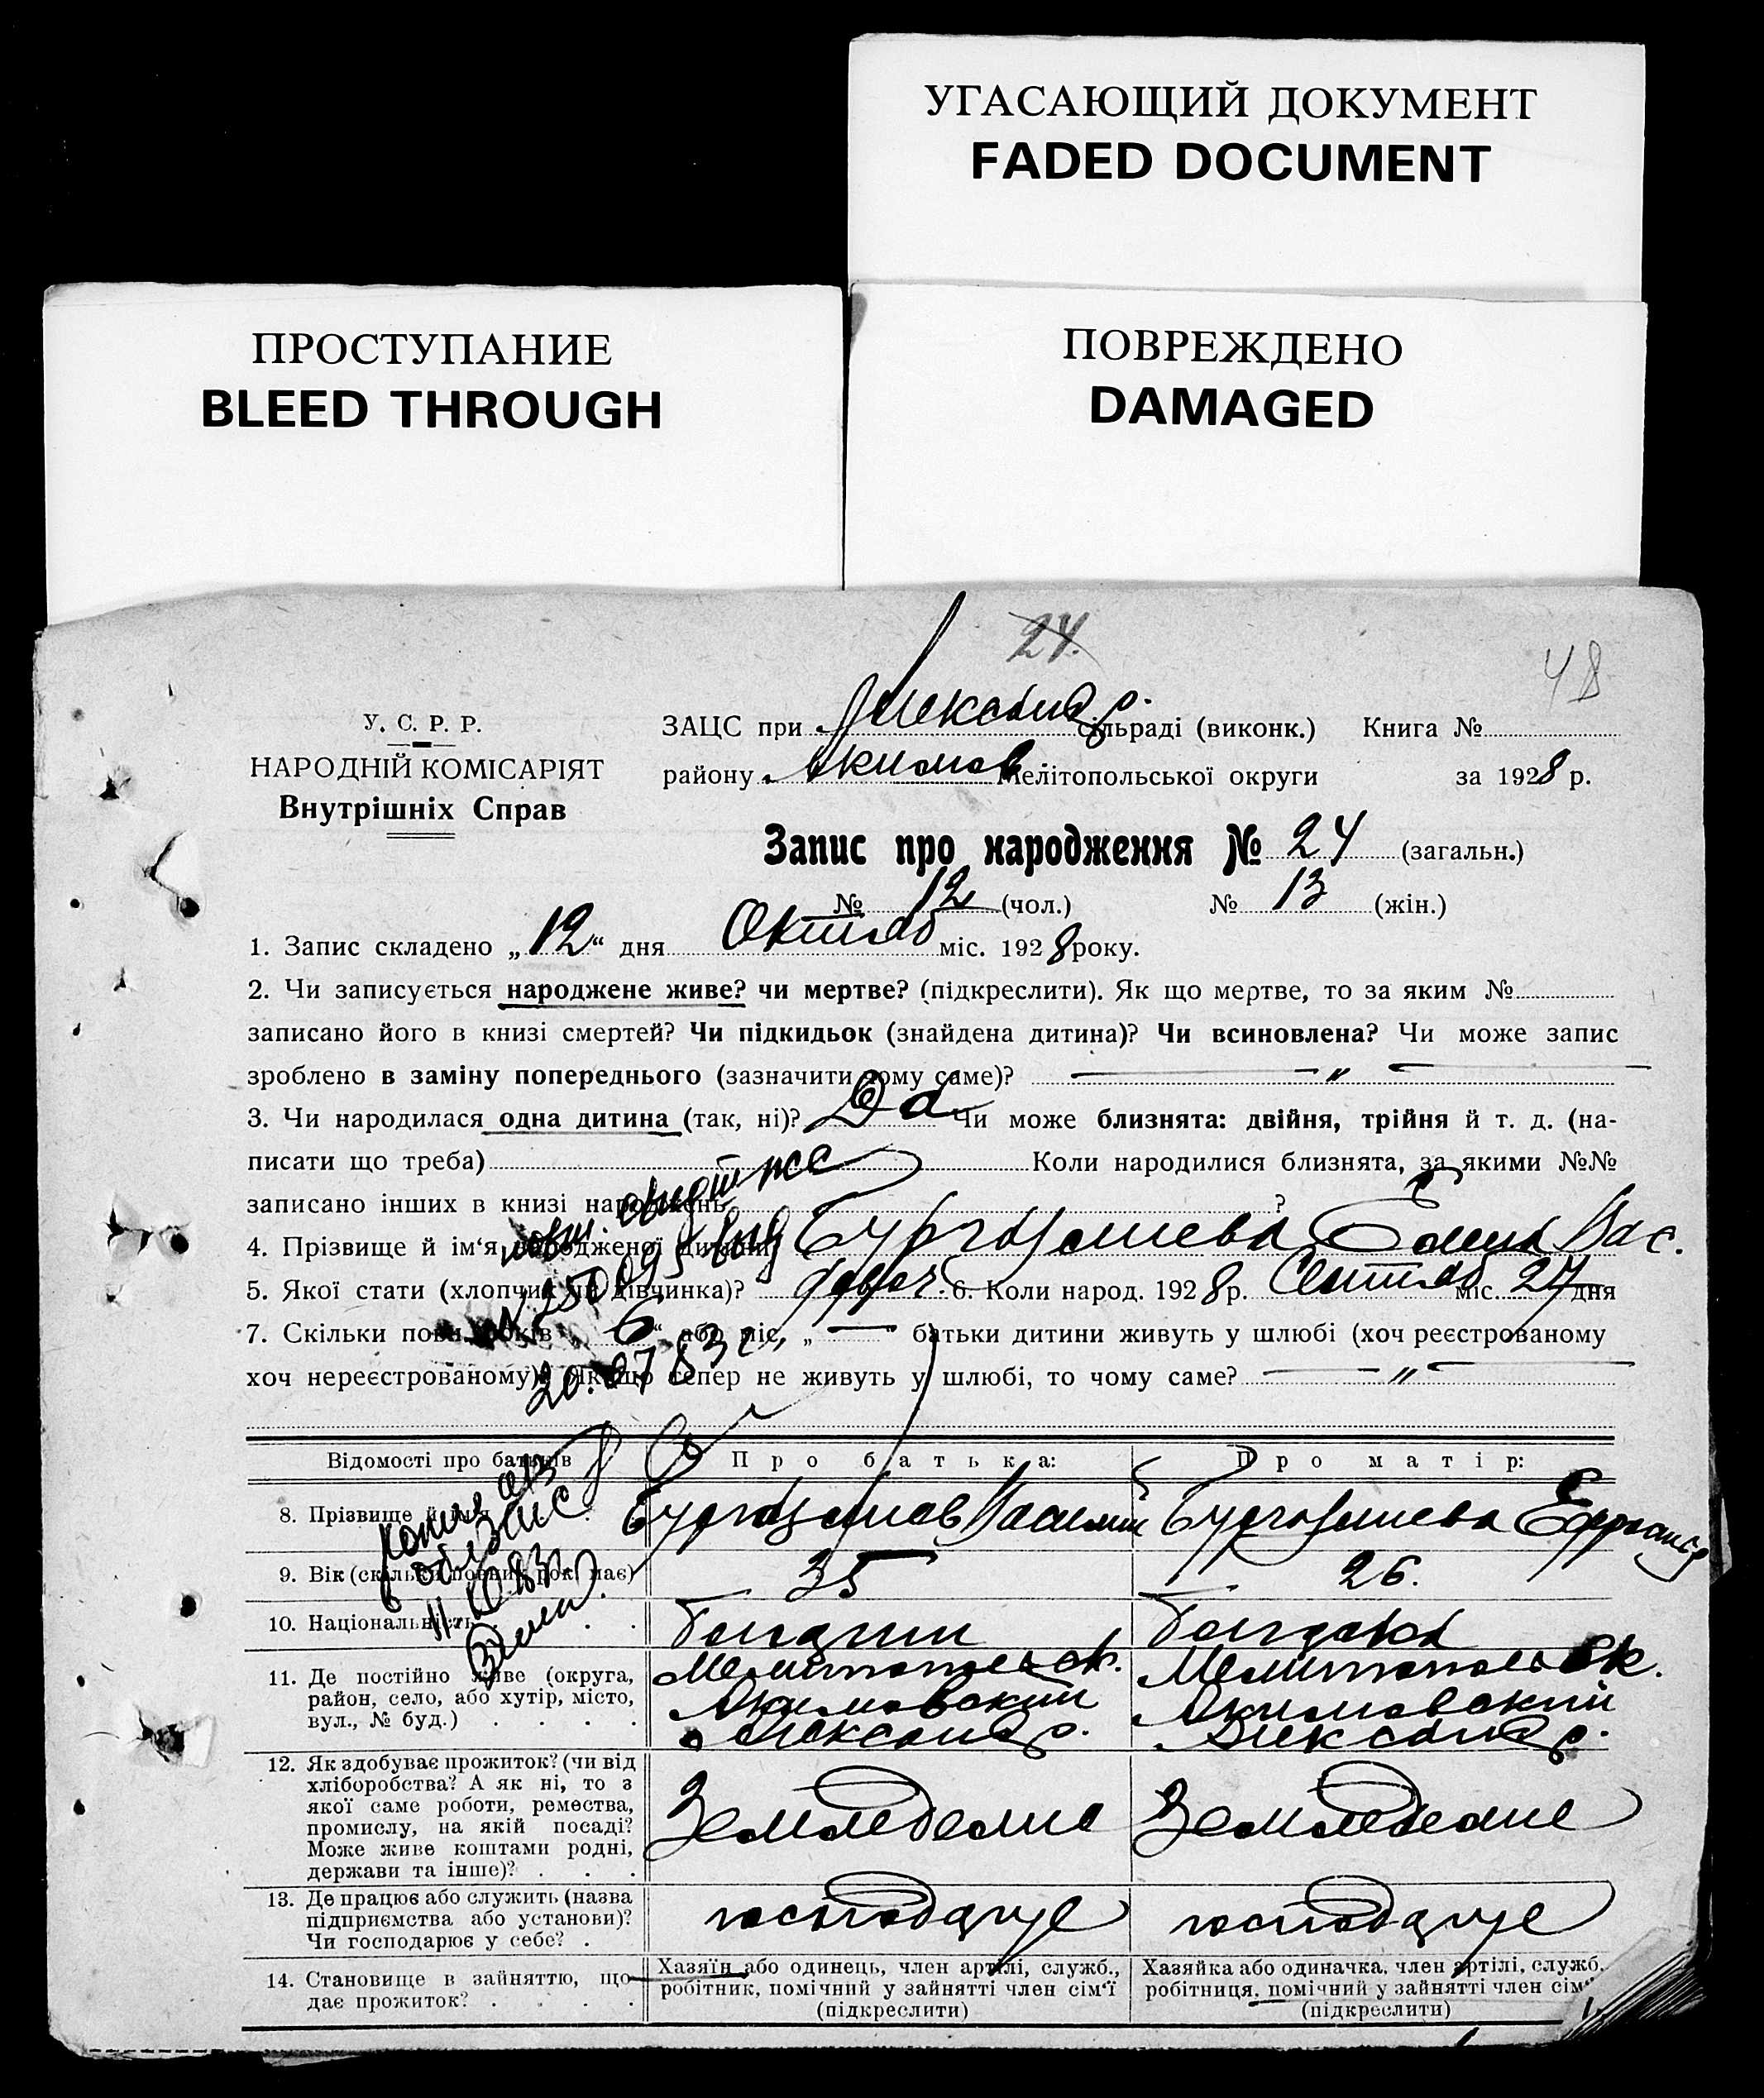 УГАСАЮЩИЙ ДОКУМЕНТ
FADED DOCUMENT
ПРОСТУПАНИЕ
BLEED THROUGH
ПОВРЕЖДЕНО
DAMAGED
24.
48
У. С. Р. Р.
НАРОДНІЙ КОМІСАРІЯТ
Внутрішніх Справ
ЗАЦС при Александр. сільраді (виконк.) Книга №
району Акимов Мелітопольської округи за 1928 р.
Запис про народження № 24 (загальн.)
№ 12 (чол.) № 13 (жін.)
1. Запис складено „12“ дня Октяб міс. 1928 року.
2. Чи записується народжене живе? чи мертве? (підкреслити). Як що мертве, то за яким №
записано його в книзі смертей? Чи підкидьок (знайдена дитина)? Чи всиновлена? Чи може запис
зроблено в заміну попереднього (зазначити чому саме)? — „ —
3. Чи народилася одна дитина (так, ні)? Да Чи може близнята: двійня, трійня й т. д. (на-
писати що треба) Коли народилися близнята, за якими №№
записано інших в книзі народжень ?
4. Прізвище й ім‘я народженої дитини Елена Вас.
5. Якої стати (хлопчик чи дівчинка)? 6. Коли народ. 1928 р. Сентяб міс. 27 дня
7. Скільки повних років „ 6 “ або міс. „ — “ батьки дитини живуть у шлюбі (хоч реєстрованому
хоч нереєстрованому)? Якщо тепер не живуть у шлюбі, то чому саме? — „ —
20.07 83 г.
Відомості про батьків
Про батька:
Про матір:
8. Прізвище й ім‘я
Василий
9. Вік (скільки повних рок. має)
35
26.
10. Національність . . .
Болгарин
Болгарка
11. Де постійно живе (округа,
район, село, або хутір, місто,
вул., № буд.) . . . .
Мелитопольск.
Акимовский
Александр.
Мелитопольск.
Акимовский
Александр.
12. Як здобуває прожиток? (чи від
хліборобства? А як ні, то з
якої саме роботи, ремества,
промислу, на якій посаді?
Може живе коштами родні,
держави та інше)? . . .
Земледелие
Земледелие
13. Де працює або служить (назва
підприємства або установи)?
Чи господарює у себе? .
14. Становище в зайняттю, що
дає прожиток? . . . .
Хазяїн або одинець, член артілі, служб.,
робітник, помічний у зайнятті член сім‘ї
(підкреслити)
Хазяйка або одиначка, член артілі, служб.
робітниця, помічний у зайнятті член сім‘ї
(підкреслити)